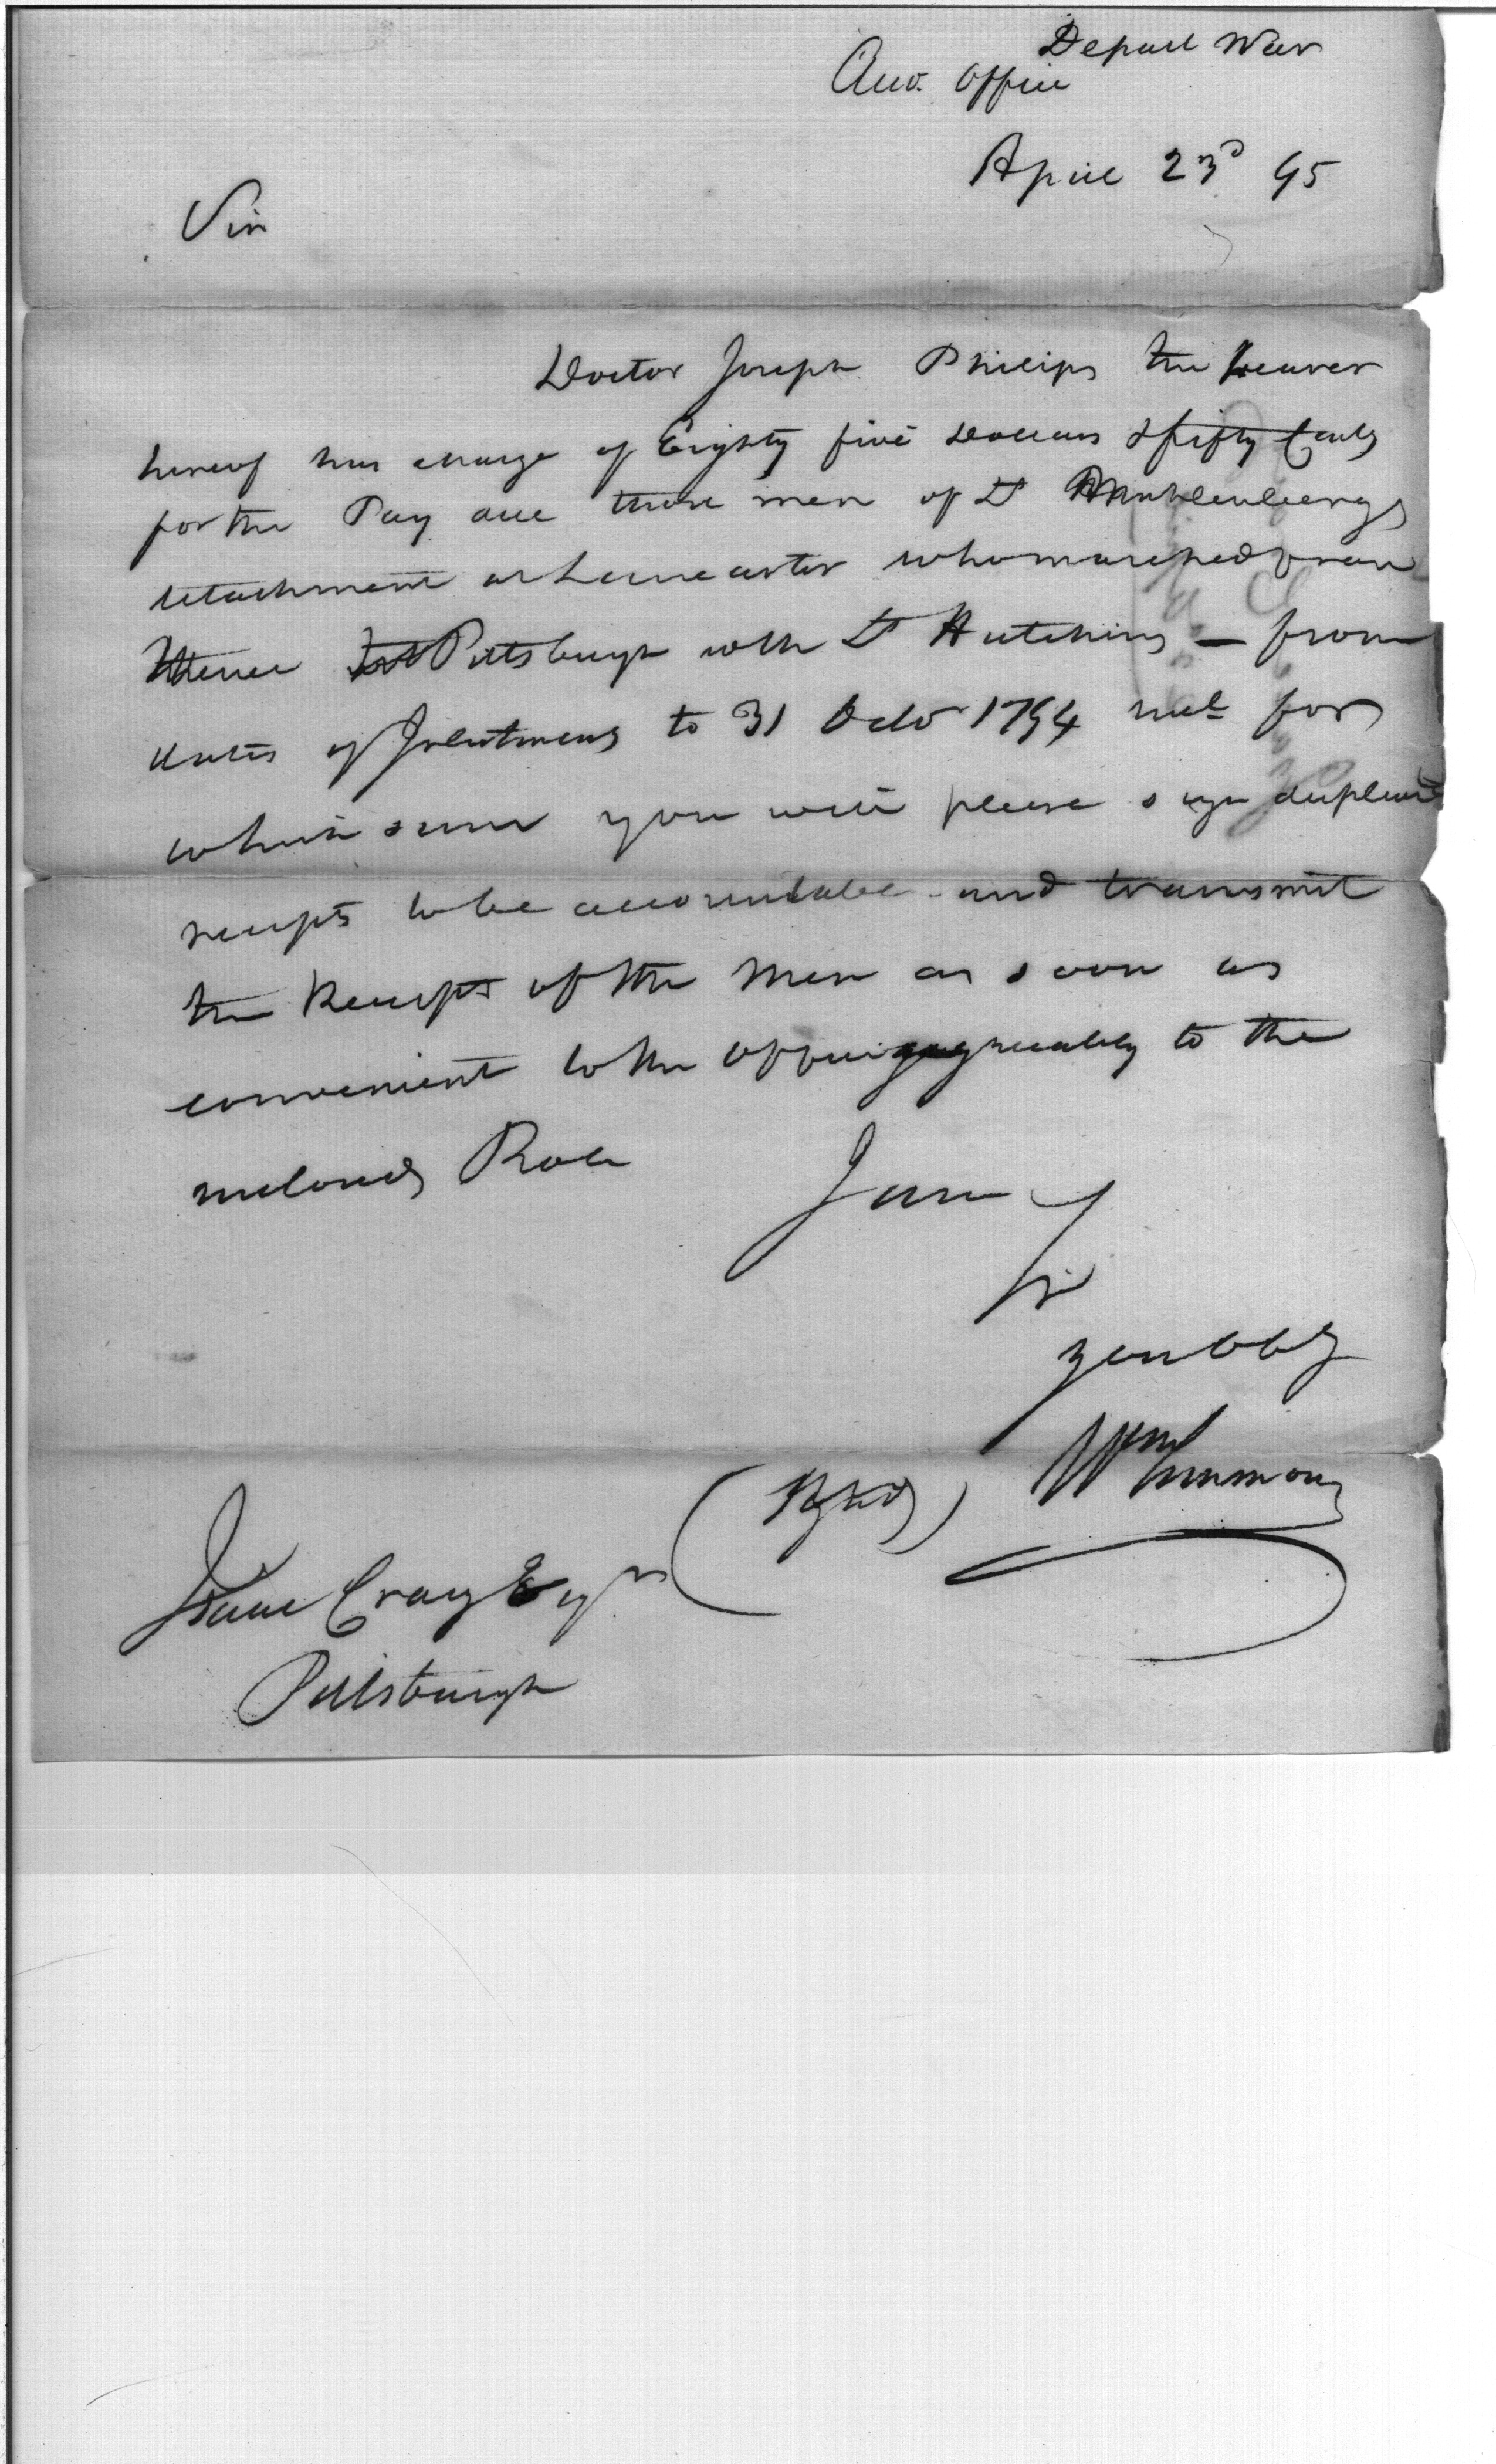 Depart War
Acco. Office
April 23d 95
Sir
Doctor Joseph Philips the bearer
hereof has charge of Eighty five Dollars & fifty Cents
for the Pay due those men of Lt Muhlenbergs
detachment at Lancaster who marched from
thence to Pittsburgh with Lt Hutchins — from
dates of Inlistments to 31 Octo 1794 for
which sum you will please sign duplicate
receipts to be accountable and transmit
the Receipts of the Men as soon as
convenient to the Office agreeably to the
inclosed Role
I am
Sir
your obt
Wm Simmons
Isaac Craig Esqr
Pittsburgh